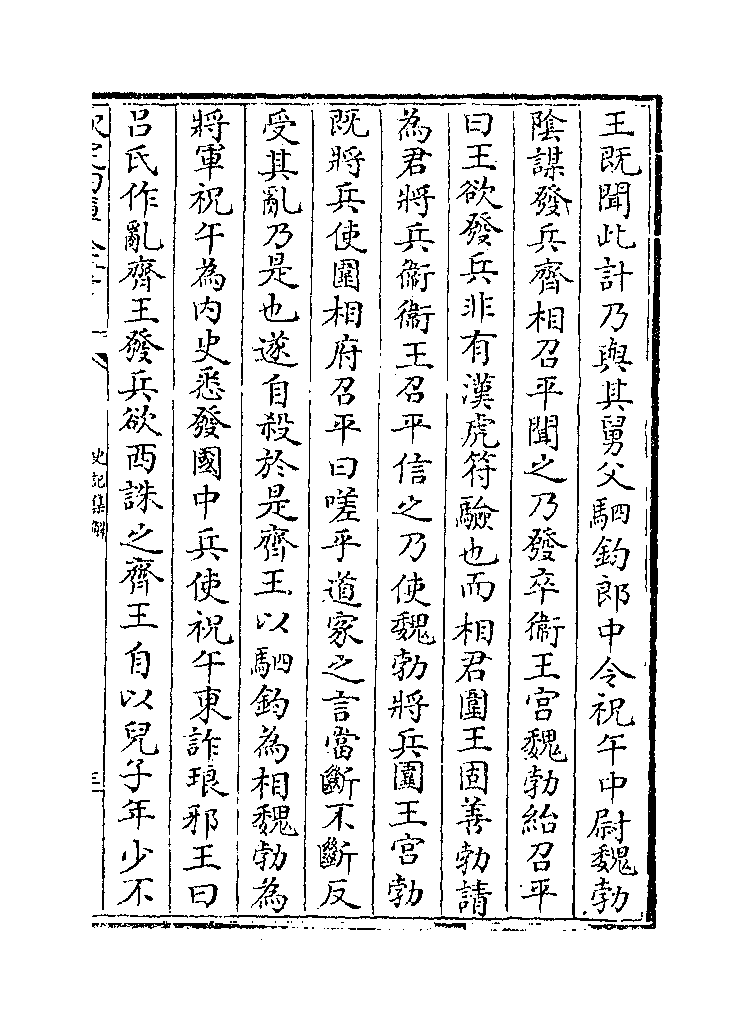 王既聞此計乃與其舅父駟鈞郎中令祝午中尉魏勃
陰謀發兵齊相召平聞之乃發卒衞王宮魏勃紿召平
曰王欲發兵非有漢虎符驗也而相君圍王固善勃請
為君將兵衞衞王召平信之乃使魏勃將兵圍王宮勃
既將兵使圍相府召平曰嗟乎道家之言當斷不斷反
受其亂乃是也遂自殺於是齊王以駟鈞為相魏勃為
將軍祝午為內史悉發國中兵使祝午東詐琅邪王曰
呂氏作亂齊王發兵欲西誅之齊王自以兒子年少不
史記集解